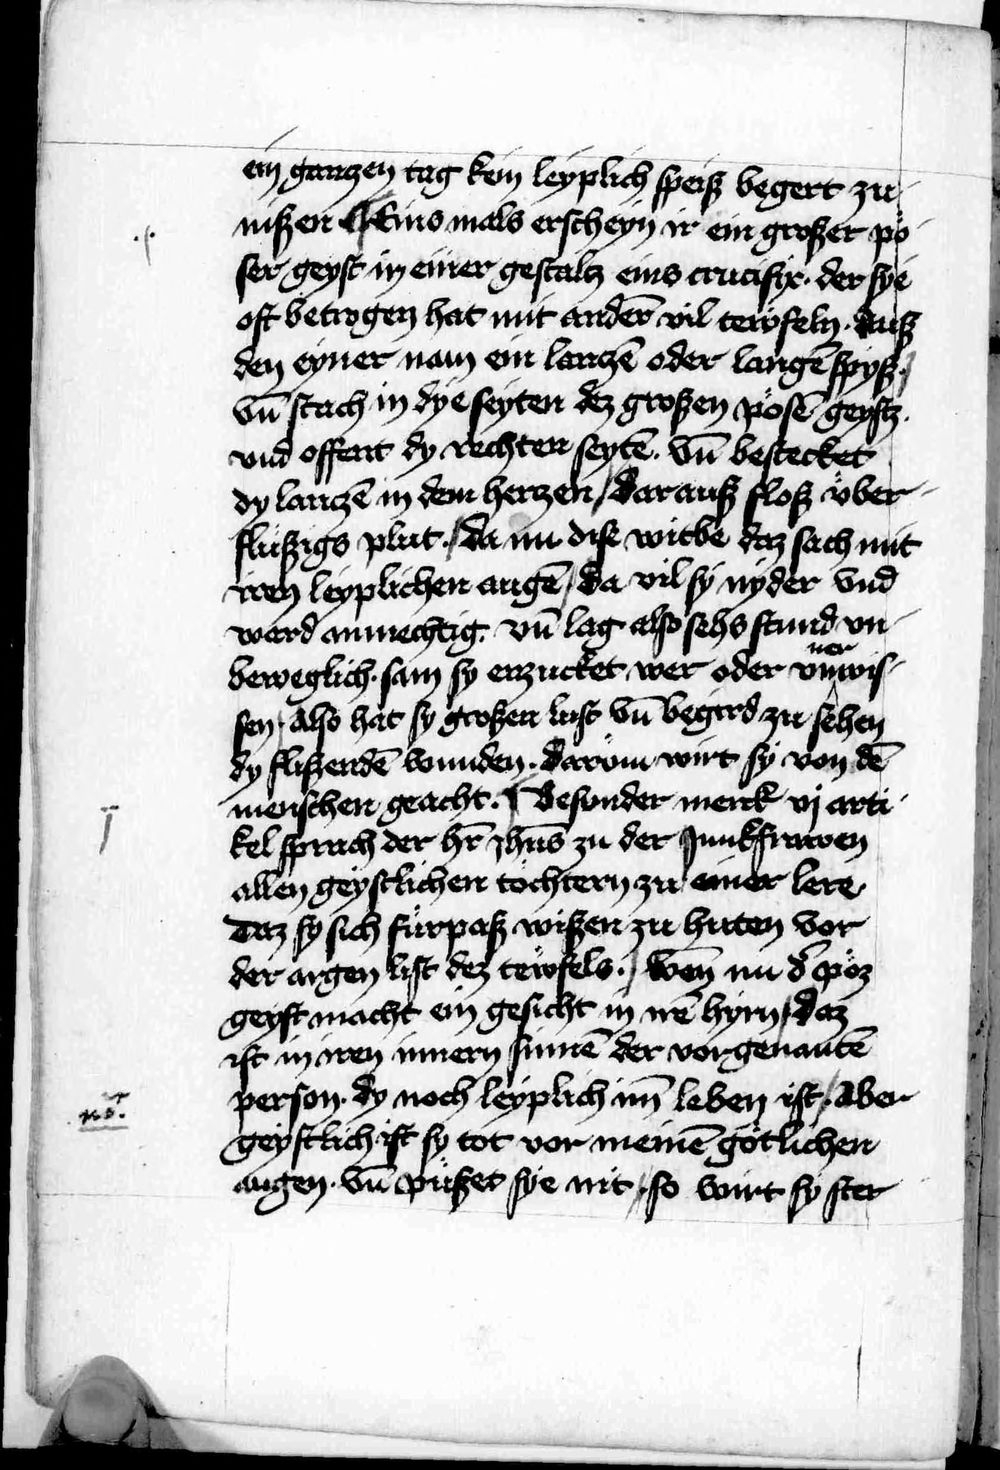 ein gantzen tag kein leyplich speiß begert zu
nißen Eins mals erscheyn ir ein großer pö
ser geyst in einer gestaltz eins crucifix. der sye
oft betrogen hat mit anderē vil tewfeln. Auß
den eyner nam ein lantzē oder langē spyß.
vn̄ stach in dye seyten dez großen pösē geystz.
vnd offent dy rechten seytē. Vn̄ bestecket
dy lantzē in dem hertzen / Dar auß floß über
flüßigs plut. / Da nu dise witbe daz sach mit
iren leyplichen augē / Da vil sy nyder vnd
ward anmechtig. vn̄ lag also sehs stund vn
beweglich. sam sy erzucket wer oder vn ver wis
sen / Also hat sy großen lust vn̄ begird zu sehen
dy flißendē wunden. Darüm wirt sy von dē
menschen geacht. Besunder merck vj arti
kel sprach der hr̄ jhūs zu der Junkfrawen
allen geystlichen töchtern zu einer lere
Daz sy sich fürpaß wißen zu huten vor
der argen list dez tewfels. / Wen̄ nu d̄ pöz
geyst macht ein gesicht in irē hyrn / daz
ist in iren innern sinnē der vorgenantē
person. dy noch leyplich im̄ leben ist / Aber
geystlich ist sy tot vor meinē götlichen
augen. Vn̄ püßet sye nit / so wirt sy ster